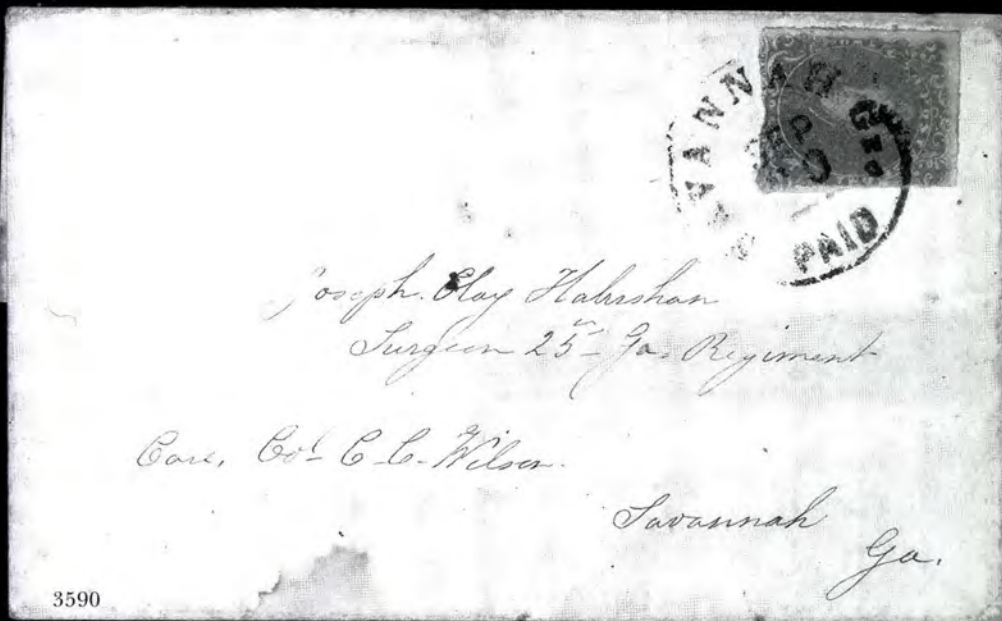 SAVANNAH Geo
PAID
Joseph Clay Habersham
Surgeon 25th Ga. Regiment
Care, Col C. C. Wilson.
Savannah
Ga.
3590